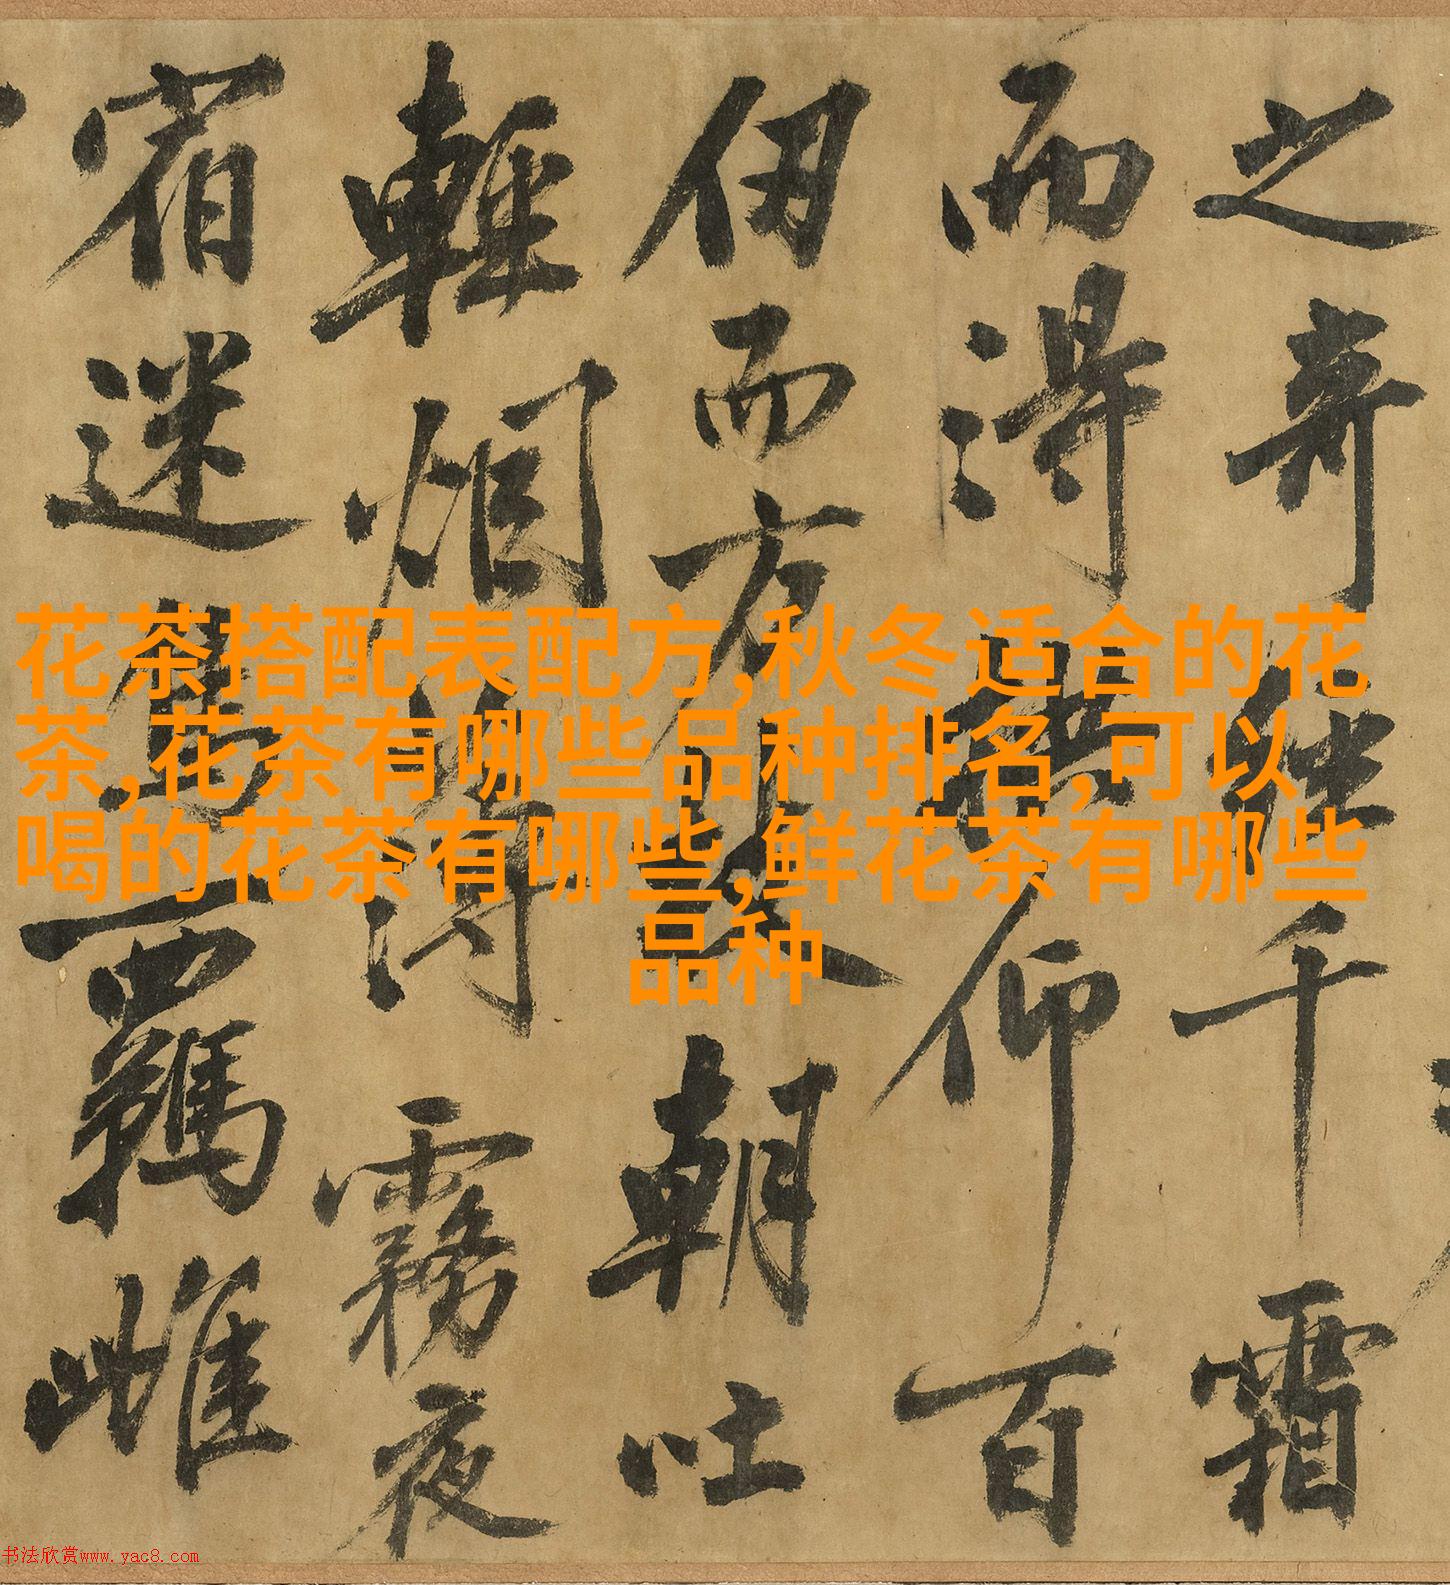 花茶搭配表配方,秋冬适合的花
茶,花茶有哪些品种排名,可以
喝的花茶有哪些,鲜花茶有哪些
品种
之奇千霜
而得仰百
伊而方朝吐
輕烟霧夜
宿迷鳥羈雌
书法欣赏www.yac8.com